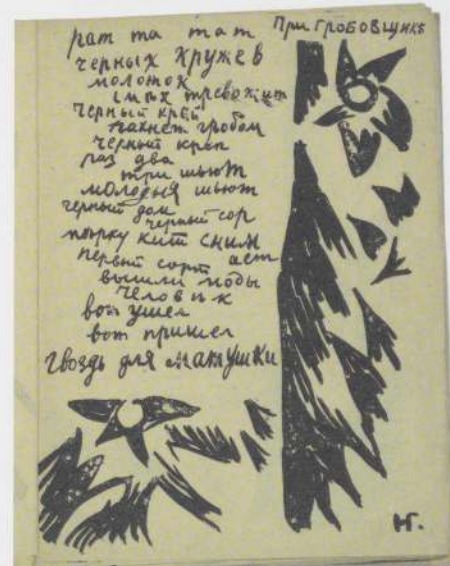 При гробовщикѣ
рат та тат
черных кружев
молоток
смѣх тревожит
черный креп
пахнет гробом
черный креп
раз два
три шьют
молодыя шьют
черный дом
черный сор
кит сним
первый сорт аст
вышли моды
человѣк
вот ушел
вот пришел
гвоздь для макушки
НГ.